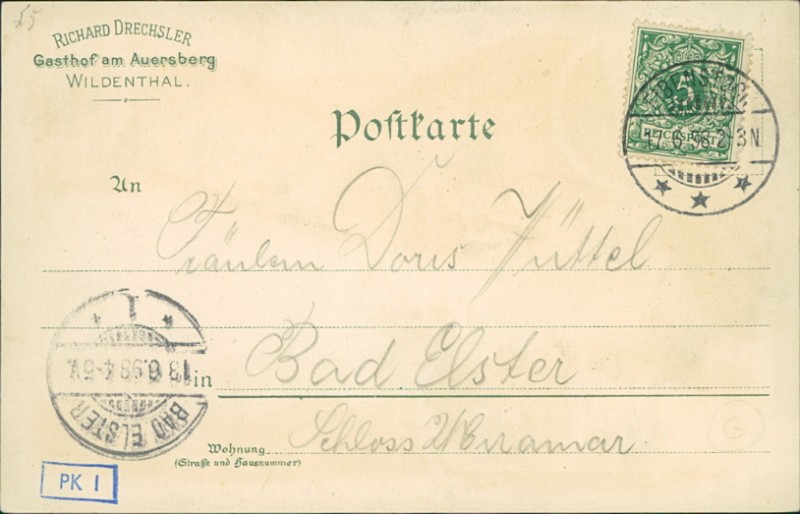 25
RICHARD DRECHSLER
Gasthof am Auersberg
WILDENTHAL.
5
REICHSPOST
17 6 98 2-3N
Postkarte
An
Fräulein Doris Jüttel
1
13.6.98 4-5V.
BAD ELSTER
in Bad Elster
Schloss Miramar.
Wohnung
(Straße und Hausnummer)
G
PK I